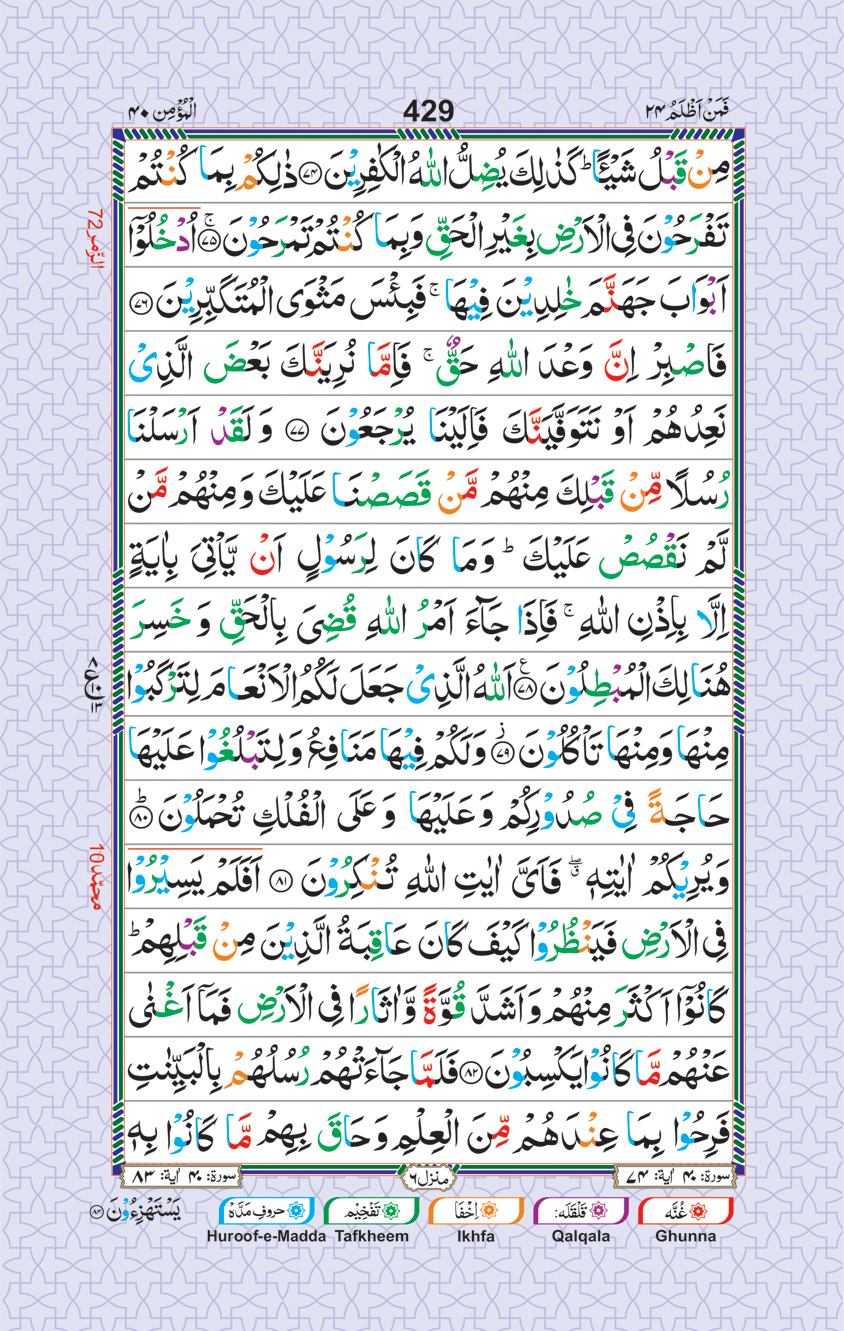 فَمَنْ اَظْلَمُ ۲۴
429
الْمُؤْمِن ۴۰
مِنْ قَبْلُ شَيْـًٔا ؕ كَذٰلِكَ يُضِلُّ اللّٰهُ الْكٰفِرِيْنَ ﴿۷۴﴾ ذٰلِكُمْ بِمَا كُنْتُمْ
تَفْرَحُوْنَ فِى الْاَرْضِ بِغَيْرِ الْحَقِّ وَبِمَا كُنْتُمْ تَمْرَحُوْنَ ۚ ﴿۷۵﴾ اُدْخُلُوْٓا
الزّمر 72
اَبْوَابَ جَهَنَّمَ خٰلِدِيْنَ فِيْهَا ۚ فَبِئْسَ مَثْوَى الْمُتَكَبِّرِيْنَ ﴿۷۶﴾
فَاصْبِرْ اِنَّ وَعْدَ اللّٰهِ حَقٌّ ۚ فَاِمَّا نُرِيَنَّكَ بَعْضَ الَّذِىْ
نَعِدُهُمْ اَوْ نَتَوَفَّيَنَّكَ فَاِلَيْنَا يُرْجَعُوْنَ ﴿۷۷﴾ وَلَقَدْ اَرْسَلْنَا
رُسُلًا مِّنْ قَبْلِكَ مِنْهُمْ مَّنْ قَصَصْنَا عَلَيْكَ وَمِنْهُمْ مَّنْ
لَّمْ نَقْصُصْ عَلَيْكَ ؕ وَمَا كَانَ لِرَسُوْلٍ اَنْ يَّاْتِىَ بِاٰيَةٍ
اِلَّا بِاِذْنِ اللّٰهِ ۚ فَاِذَا جَآءَ اَمْرُ اللّٰهِ قُضِىَ بِالْحَقِّ وَخَسِرَ
هُنَالِكَ الْمُبْطِلُوْنَ ﴿۷۸﴾ ع اَللّٰهُ الَّذِىْ جَعَلَ لَكُمُ الْاَنْعَامَ لِتَرْكَبُوْا
۸ ع ۱۰ ۱۳
مِنْهَا وَمِنْهَا تَاْكُلُوْنَ ز ﴿۷۹﴾ وَلَكُمْ فِيْهَا مَنَافِعُ وَلِتَبْلُغُوْا عَلَيْهَا
حَاجَةً فِىْ صُدُوْرِكُمْ وَعَلَيْهَا وَعَلَى الْفُلْكِ تُحْمَلُوْنَ ؕ ﴿۸۰﴾
وَيُرِيْكُمْ اٰيٰتِهٖ ۖ ق فَاَىَّ اٰيٰتِ اللّٰهِ تُنْكِرُوْنَ ﴿۸۱﴾ اَفَلَمْ يَسِيْرُوْا
محمّد 10
فِى الْاَرْضِ فَيَنْظُرُوْا كَيْفَ كَانَ عَاقِبَةُ الَّذِيْنَ مِنْ قَبْلِهِمْ ؕ
كَانُوْٓا اَكْثَرَ مِنْهُمْ وَاَشَدَّ قُوَّةً وَّاٰثَارًا فِى الْاَرْضِ فَمَآ اَغْنٰى
عَنْهُمْ مَّا كَانُوْا يَكْسِبُوْنَ ﴿۸۲﴾ فَلَمَّا جَآءَتْهُمْ رُسُلُهُمْ بِالْبَيِّنٰتِ
فَرِحُوْا بِمَا عِنْدَهُمْ مِّنَ الْعِلْمِ وَحَاقَ بِهِمْ مَّا كَانُوْا بِهٖ
سورة: ۴۰ اٰية: ۷۴
منزل ۶
سورة: ۴۰ اٰية: ۸۳
يَسْتَهْزِءُوْنَ ﴿۸۳﴾
غُنَّه
قَلْقَلَه:
اِخْفَا
تَفْخِيْم
حروفِ مَدَّه
Huroof-e-Madda Tafkheem Ikhfa Qalqala Ghunna